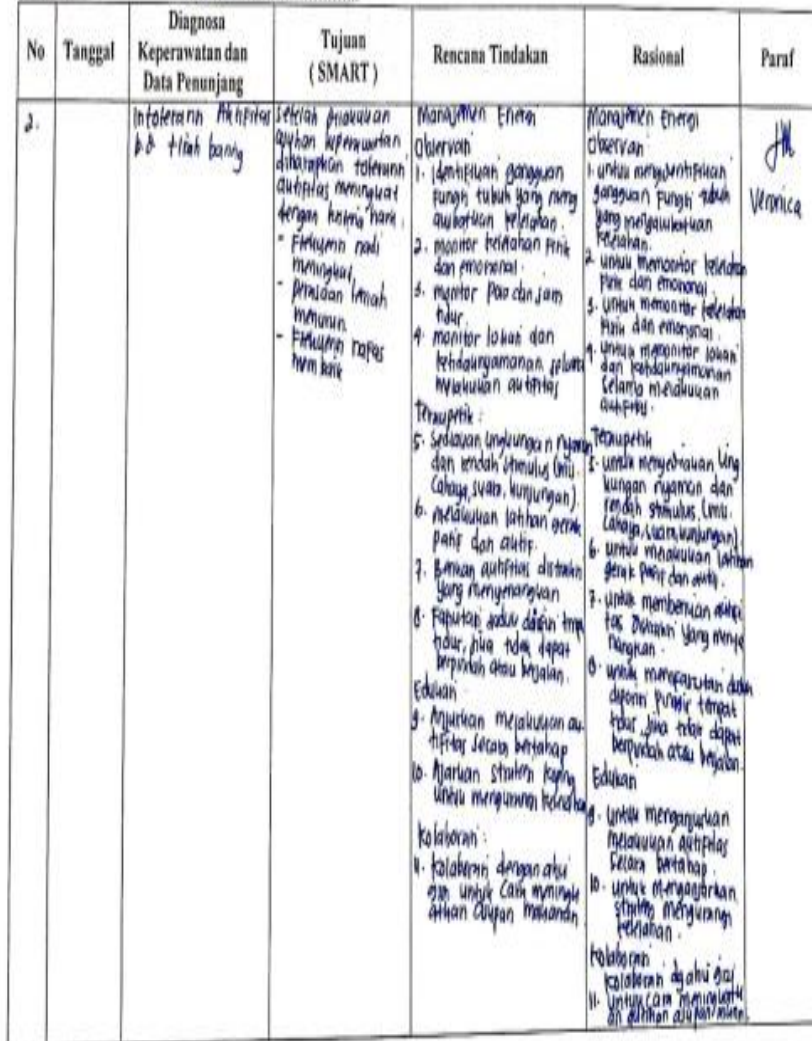 No
Tanggal
Diagnosa
Keperawatan dan
Data Penunjang
Tujuan
( SMART )
Rencana Tindakan
Rasional
Paraf
2.
Intoleransi Aktifitas
b.d tirah baring
Setelah dilakukan
asuhan keperawatan
diharapkan toleransi
aktifitas meningkat
dengan kriteria hasil.
- Frekuensi nadi
meningkat,
- perasaan lemah
menurun
- Frekuensi nafas
membaik
Manajemen Energi
Observasi
1. Identifikasi gangguan
fungsi tubuh yang meng
akibatkan kelelahan.
2. monitor kelelahan fisik
dan emosional.
3. monitor pola dan jam
tidur.
4. monitor lokasi dan
ketidaknyamanan selama
melakukan aktifitas
Teraupetik :
5. Sediakan lingkungan nyaman
dan rendah stimulus (mis.
Cahaya, suara, kunjungan).
6. melakukan latihan gerak
pasif dan aktif.
7. Berikan aktifitas distraksi
yang menyenangkan
8. Fasilitasi duduk disisi tmpt
tidur, jika tidak dapat
berpindah atau berjalan.
Edukasi
9. Anjurkan melakukan ak-
tifitas secara bertahap
10. Ajarkan strategi koping
untuk mengurangi kelelahan
Kolaborasi :
11. Kolaborasi dengan ahli
gizi untuk Cara meningk
atkan asupan makanan
Manajemen Energi
Observasi
1. untuk mengidentifikasi
gangguan fungsi tubuh
yang mengakibatkan
kelelahan.
2. untuk memonitor kelelahan
fisik dan emosional.
3. untuk memonitor kelelahan
fisik dan emosional.
4. Untuk memonitor lokasi
dan ketidaknyamanan
selama melakukan
aktifitas.
Teraupetik
5. untuk menyediakan ling
kungan nyaman dan
rendah stimulus (mis.
Cahaya, suara, kunjungan)
6. untuk melakukan latihan
gerak pasif dan aktif.
7. untuk memberikan aktifi
tas Distraksi yang menye
nangkan.
8. untuk duduk
tempat
tidur, jika tidak dapat
berpindah atau berjalan.
Edukasi
9. untuk menganjurkan
melakukan aktifitas
secara bertahap.
10. untuk mengajarkan
strategi mengurangi
kelelahan.
Kolaborasi
Kolaborasi dg ahli gizi
11. untuk cara meningkatk
an
Veronica